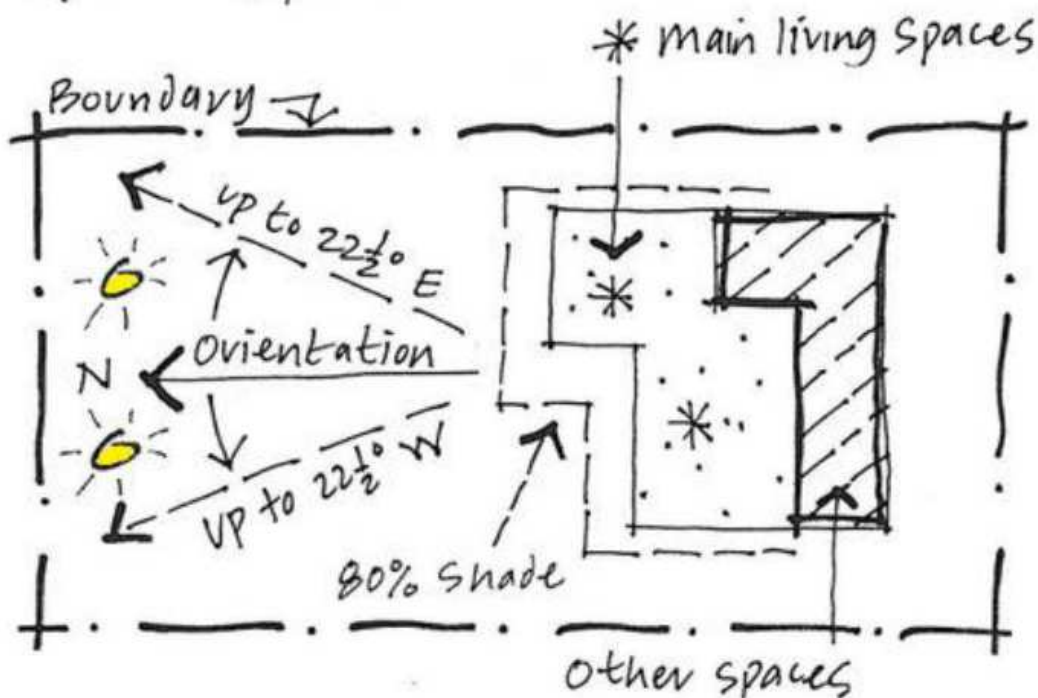 * main living spaces
Boundary
up to 22½° E
Orientation
N
UP to 22½° W
80% shade
other spaces